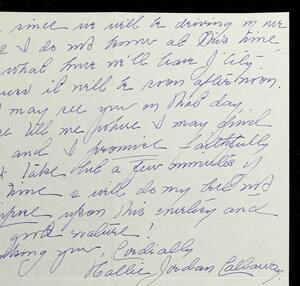 since we will be driving in we
I do not know at this time
what time we'll leave J. City.
it will be soon afternoon.
I may see you on that day.
tell me where I may
and I promise faithfully
Take but a few minutes of
time & will do my best not
upon this courtesy and
good nature!
you, Cordially
Hallie Jordan Callaway.